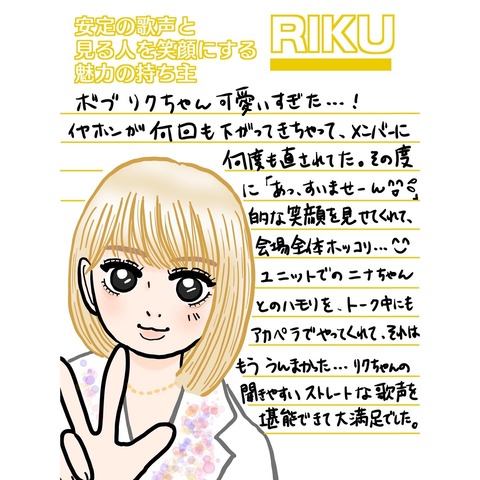 安定の歌声と
見る人を笑顔にする
魅力の持ち主
RIKU
ボブ リクちゃん可愛いすぎた…!
イヤホンが何回も下がってきちゃって、メンバーに
何度も直されてた。その度
に「あっ、すいませーん
的な笑顔を見せてくれて、
会場全体ホッコリ…
ユニットでのニナちゃん
とのハモリを、トーク中にも
アカペラでやってくれて、それは
もううんまかた…リクちゃんの
聞きやすいストレートな歌声を
堪能できて大満足でした。